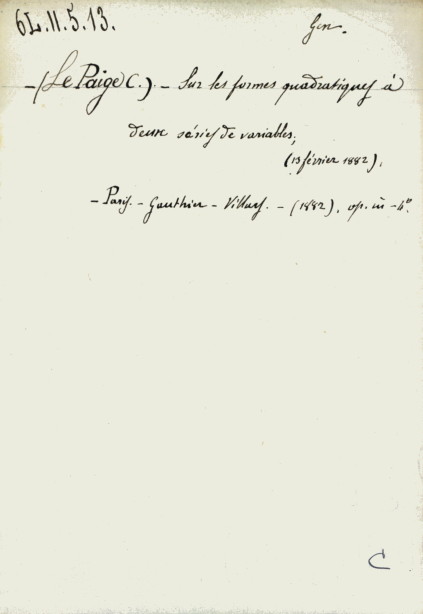 6L.11.5.13.
Gen.
- (Le Paige C.) - Sur les formes quadratiques à
deux séries de variables;
(13 février 1882),
- Paris. - Gauthier - Villars. - (1882), op. in - 4°.
C